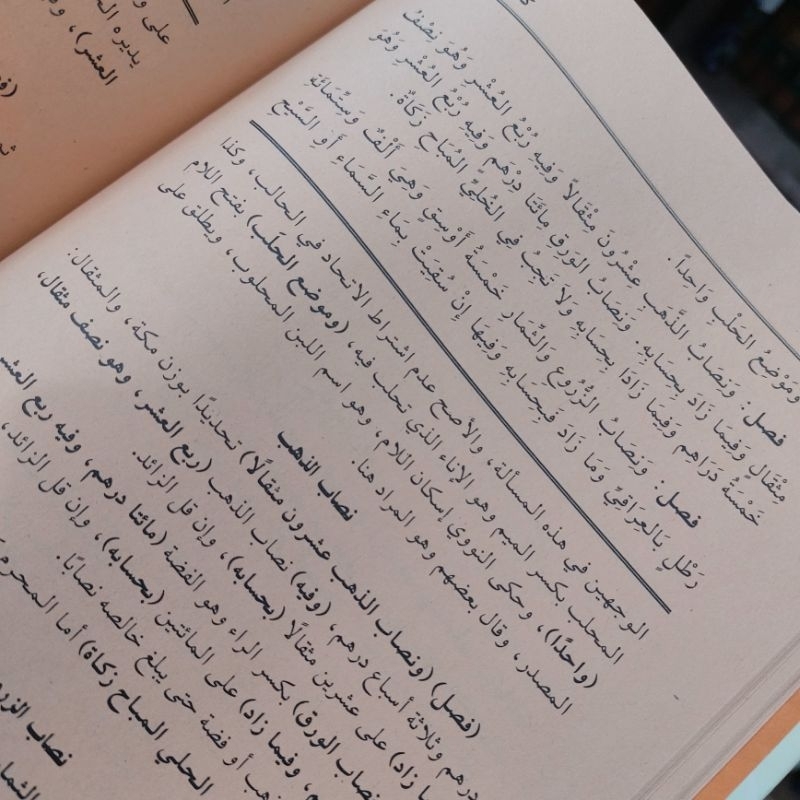 على و
يديره ال
العشر)، وفي
وَمَوْضِعُ الحَلْبِ وَاحِداً.
فصل: وَنِصَابُ الذَّهَبِ عِشْرُونَ مِثْقَالاً وَفِيهِ رُبْعُ العُشْرِ وَهُوَ نِصْفُ
مِثْقَالٍ وَفِيمَا زَادَ بِحِسَابِهِ. وَنِصَابُ الوَرِقِ مِائَتَا دِرْهَمٍ وَفِيهِ رُبْعُ العُشْرِ وَهُوَ
خَمْسَةُ دَرَاهِمٍ وَفِيمَا زَادَا بِحِسَابِهِ وَلاَ تَجِبُ فِي الحُلِيِّ المُبَاحِ زَكَاةٌ.
فصل: وَنِصَابُ الزُّرُوعِ وَالثِّمَارِ خَمْسَةُ أَوْسِقٍ وَهِيَ أَلْفٌ وَسِتُّمَائَةِ
رَطْلٍ بِالعِرَاقِيِّ وَمَا زَادَ فَبِحِسَابِهِ وَفِيهَا إِنْ سُقِيَتْ بِمَاءِ السَّمَاءِ أَوِ السَّيْحِ
الوجهين في هذه المسألة، والأصح عدم اشتراط الاتحاد في الحالب، وكذا
المحلب بكسر الميم وهو الإناء الذي تحلب فيه، (وموضع الحلَب) بفتح اللام
(واحدًا)، وحكى النووي إسكان اللام، وهو اسم اللبن المحلوب، ويطلق على
المصدر، وقال بعضهم وهو المراد هنا.
نصاب الذهب
(فصل) (ونصاب الذهب عشرون مثقالًا) تحديدًا بوزن مكة، والمثقال:
درهم وثلاثة أسباع درهم، (وفيه) نصاب الذهب (ربع العشر، وهو نصف مثقال،
زاد) على عشرين مثقالًا (بحسابه)، وإن قل الزائد.
نصاب الورق) بكسر الراء وهو الفضة (مائتا درهم، وفيه ربع العشر
، وفيما زاد) على المائتين (بحسابه)، وإن قل الزائد،
ذهب أو فضة حتى يبلغ خالصه نصابًا.
الحلي المباح زكاة) أما المحرم
نصاب الزرو
الثما